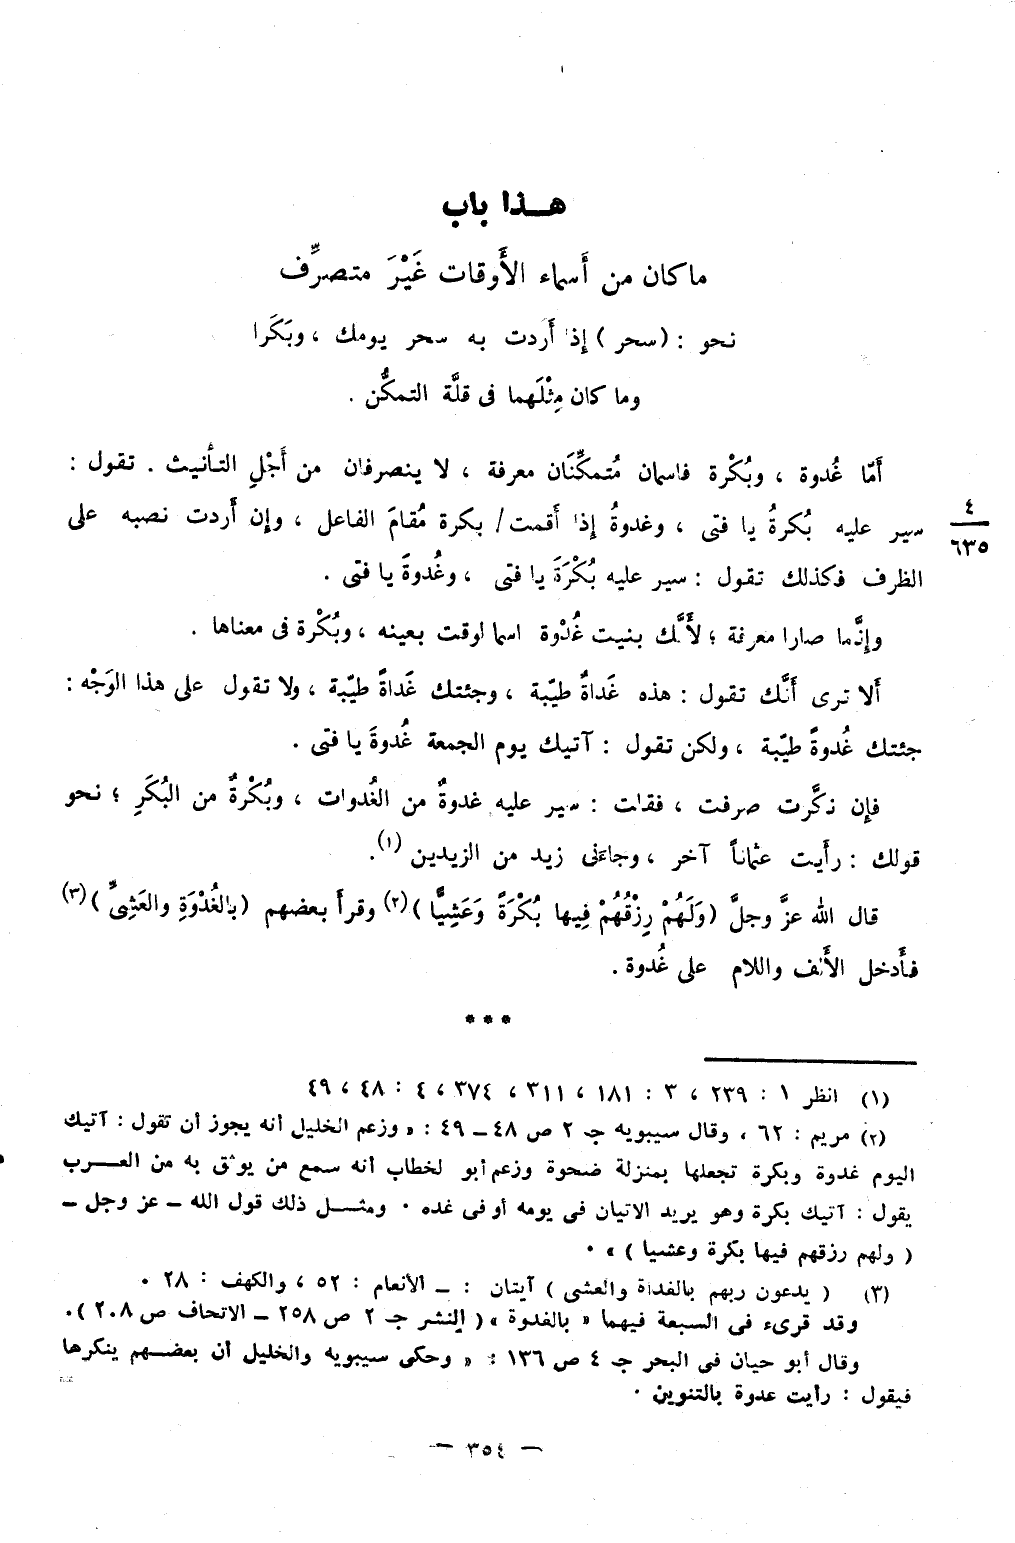 هــذا باب
ما كان من أَسماء الأَوقات غَيْرَ متصرِّف
نحو : (سحر) إِذا أَردت به سحر يومك ، وبَكَرا
وما كان مِثْلَهما فى قلَّة التمكُّن .
أَمّا غُدوة ، وبُكْرة فاسمان مُتمكِّنَان معرفة ، لا ينصرفان من أَجْلِ التأنيث . تقول :
سير عليه بُكرةُ يا فتى ، وغدوةُ إِذا أَقمت / بكرة مُقامَ الفاعل ، وإِن أَردت نصبه على
٤
٦٣٥
الظرف فكذلك تقول : سير عليه بُكْرَةَ يا فتى ، وغُدوةَ يا فتى .
وإِنَّما صارا معرفة ؛ لأَنَّك بنيت غُدْوة اسما لوقت بعينه ، وبُكْرة فى معناها .
أَلا ترى أَنَّك تقول : هذه غَداةٌ طيّبة ، وجئتك غَداةً طيّبة ، ولا تقول على هذا الوَجْه :
جئتك غُدوةً طيّبة ، ولكن تقول : آتيك يوم الجمعة غُدوةَ يا فتى .
فإِن نكَّرت صرفت ، فقلت : سير عليه غدوةٌ من الغُدوات ، وبُكْرةٌ من البُكَرِ ؛ نحو
قولك : رأَيت عثماناً آخر ، وجاءَنى زيد من الزيدين (١).
قال الله عزَّ وجلَّ (وَلَهُمْ رِزْقُهُمْ فِيها بُكْرَةً وَعَشِيًّا)(٢) وقرأ بعضهم (بِالغُدْوَةِ والعَشِىِّ)(٣)
فأَدخل الأَلف واللام على غُدوة .
* * *
(١) انظر ١ : ٢٣٩ ، ٣ : ١٨١ ، ٣١١ ، ٣٧٤ ، ٤ : ٤٨ ، ٤٩
(٢) مريم : ٦٢ ، وقال سيبويه جـ ٢ ص ٤٨ ـ ٤٩ : « وزعم الخليل أنه يجوز أن تقول : آتيك
اليوم غدوة وبكرة تجعلها بمنزلة ضحوة وزعم أبو لخطاب أنه سمع من يوثق به من العــرب
يقول : آتيك بكرة وهو يريد الاتيان فى يومه أو فى غده . ومثــل ذلك قول الله ـ عز وجل ـ
( ولهم رزقهم فيها بكرة وعشيا ) » .
(٣) ( يدعون ربهم بالغداة والعشى ) آيتان : ـ الأنعام : ٥٢ ، والكهف : ٢٨ .
وقد قرىء فى السبعة فيهما « بالغدوة » ( النشر جـ ٢ ص ٢٥٨ ـ الاتحاف ص ٢٠٨ ).
وقال أبو حيان فى البحر جـ ٤ ص ١٣٦ : « وحكى سيبويه والخليل أن بعضــهم ينكرها
فيقول : رأيت غدوة بالتنوين .
— ٣٥٤ —